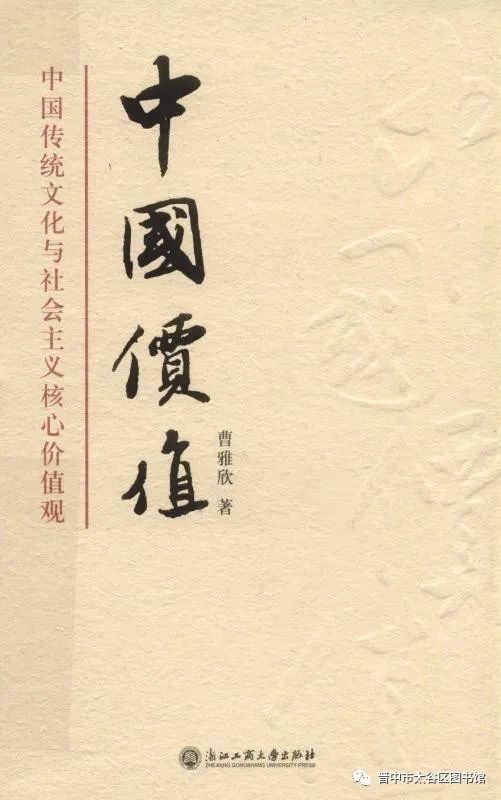 中國價值
中国传统文化与社会主义核心价值观
曹雅欣 著
浙江工商大学出版社
ZHEJIANG GONGSHANG UNIVERSITY PRESS
晋中市太谷区图书馆